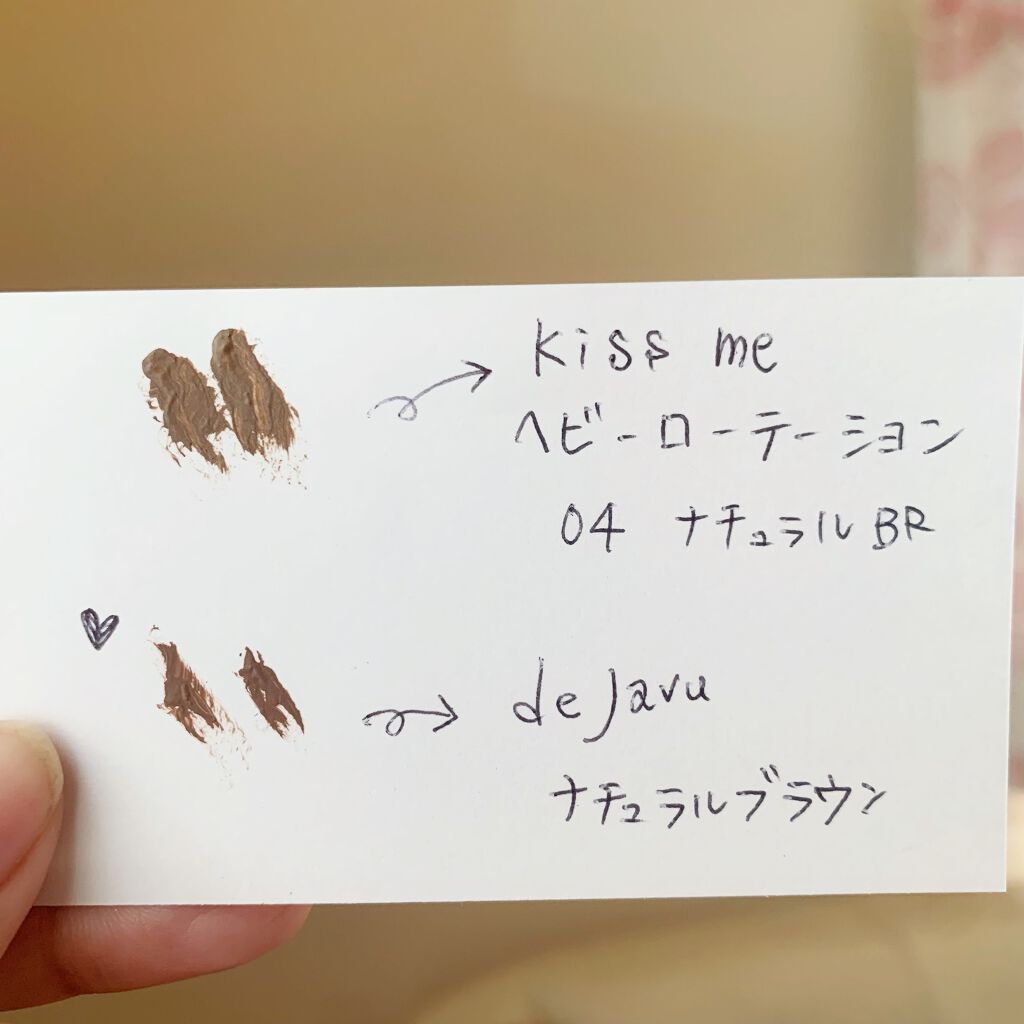 kiss me
ヘビーローテーション
04 ナチュラルBR
deJavu
ナチュラルブラウン